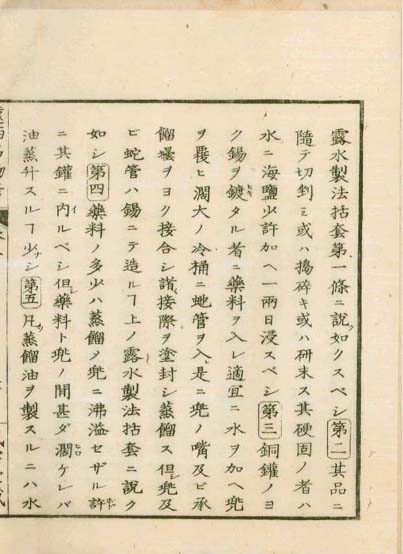 露水製法括套第一條ニ說ク如クスベシ第二其品ニ
隨テ切剉シ或ハ搗碎キ或ハ研末ス其硬固ノ者ハ
水ニ海鹽少許加ヘ一兩日浸スベシ第三銅鑵ノヨ
ク錫ヲ鍍タル者ニ藥料ヲ入レ適宜ニ水ヲ加ヘ兜
ヲ覆ヒ濶大ノ冷桶ニ蛇管ヲ入是ニ兜ノ嘴及ビ承
餾壜ヲヨク接合シ諸接際ヲ塗封シ蒸餾ス但兜及
ビ蛇管ハ錫ニテ造ルヿ上ノ露水製法括套ニ說ク
如シ第四藥料ノ多少ハ蒸餾メ兜ニ沸溢セザル許
ニ其鑵ニ內ルベシ但藥料ト兜ノ間甚ダ濶ケレバ
油蒸升スルヿ少シ第五凡蒸餾油ヲ製スルニハ水